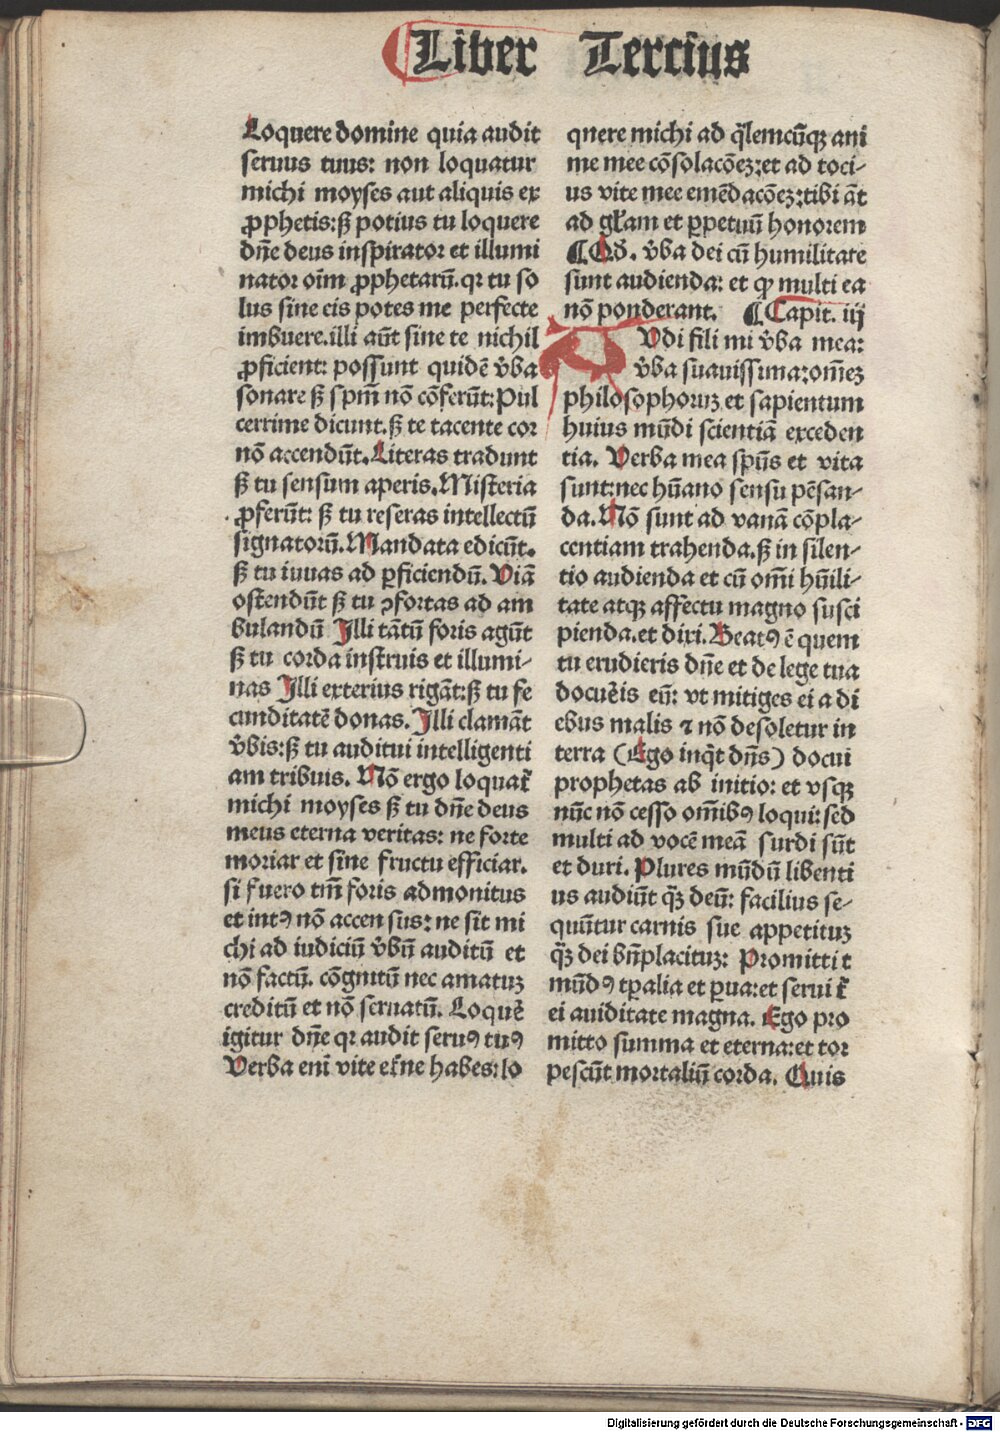 Liber Tercius
Loquere domine quia audit
seruus tuus: non loquatur
michi moyses aut aliquis ex
ꝓphetis:ẜ potius tu loquere
dñe deus inspirator et illumi
nator oīm ꝓphetarū.qꝛ tu so
lus sine eis potes me perfecte
imbuere.illi aūt sine te nichil
ꝓficient: possunt quidē v̓ba
sonare ẜ spm̄ nō cōferūt:Pul
cerrime dicunt.ẜ te tacente cor
nō accendūt.Literas tradunt
ẜ tu sensum aperis.Misteria
ꝓferūt: ẜ tu reseras intellectū
signatorū.Mandata edicūt.
ẜ tu iuuas ad ꝑficiendū.Viā
ostendūt ẜ tu ꝯfortas ad am
bulandū Illi tātū foris agūt
ẜ tu corda instruis et illumi-
nas Illi exterius rigāt:ẜ tu fe
cunditatē donas.Illi clamāt
v̓bis:ẜ tu auditui intelligenti
am tribuis. Nō ergo loquat᷑
michi moyses ẜ tu dñe deus
meus eterna veritas: ne forte
moriar et sine fructu efficiar.
si fuero tm̄ foris admonitus
et intꝰ nō accen sus: ne sit mi
chi ad iudiciū v̓bū auditū et
nō factū. cōgnitū nec amatuꝫ
creditū et nō seruatū. Loque᷑
igitur dñe qꝛ audit seruꝰ tuꝰ
Verba eni̅ vite et᷑ne habes:lo
qnere michi ad q̄lemcūqꝫ ani
me mee cōsolacōeꝫ:et ad toci-
us vite mee emēdacōeꝫ:tibi āt
ad gl̓am et ꝑpetuū honorem
¶Qd̓. v̓ba dei cū humilitate
sunt audienda: et ꝙ multi ea
nō ponderant. ¶Capit. iij
Vdi fili mi v̓ba mea:
v̓ba suauissima:om̄eꝫ
philosophoruꝫ et sapientum
huius mūdi scientiā exceden
tia. Verba mea spūs et vita
sunt:nec hūano sensu pēsan-
da.Nō sunt ad vanā cōpla-
centiam trahenda.ẜ in silen-
tio audienda et cū om̄i hūili-
tate atqꝫ affectu magno susci
pienda.et dixi.Beatꝰ ē quem
tu erudieris dñe et de lege tua
docue᷑is eū: vt mitiges ei a di
ebus malis ⁊ nō desoletur in
terra (Ego inqt̓ dñs) docui
prophetas ab initio: et vsqꝫ
nūc nō cesso om̄ibꝰ loqui:sed
multi ad vocē meā surdi sūt
et duri. Plures mūdū libenti
us audiūt qꝫ̄ deū: facilius se-
quūtur carnis sue appetituꝫ
qꝫ̄ dei bn̄placituꝫ: Promittit
mūdꝰ tꝑalia et ꝑua:et serui t᷑
ei auiditate magna. Ego pro
mitto summa et eterna:et tor
pescūt mortaliū corda. Quis
Digitalisierung gefördert durch die Deutsche Forschungsgemeinschaft - DFG